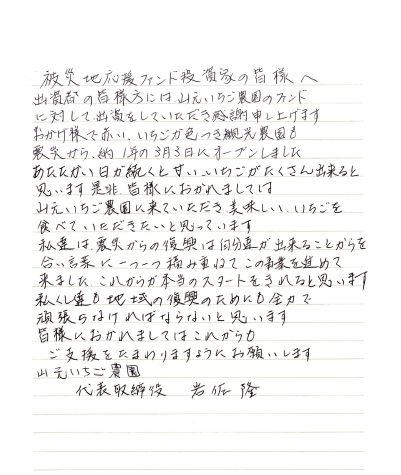 被災地応援ファンド投資家の皆様へ
出資者の皆様方には山元いちご農園のファンド
に対して出資をしていただき感謝申し上げます
おかげ様で赤い、いちごが色つき観光農園も
震災から、約1年の3月3日にオープンしました
あたたかい日が続くと甘い、いちごがたくさん出来ると
思います是非、皆様におかれましては
山元いちご農園に来ていただき美味しい、いちごを
食べていただきたいと思っています
私達は、震災からの復興は自分達が出来ることからを
合い言葉に一つ一つ積み重ねてこの事業を進めて
来ました。これからが本当のスタートをきれると思います
私くし達も地域の復興のためにも全力で
頑張らなければならないと思います
皆様におかれましてはこれからも
ご支援をたまわりますようにお願いします
山元いちご農園
代表取締役 岩佐 隆